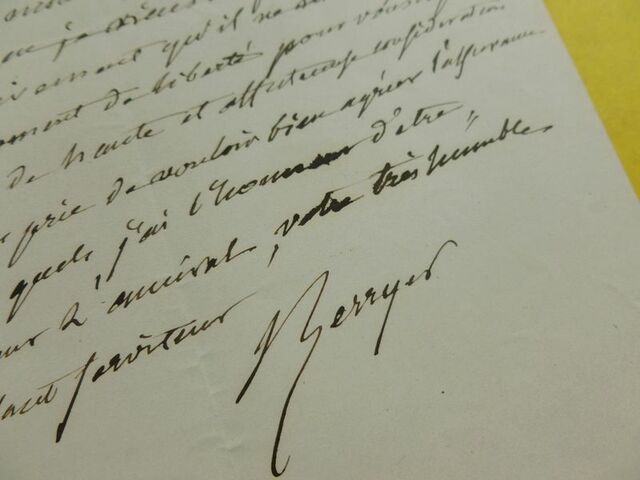 ou je viens
qu'il ne
moment de liberté pour vous
de haute et affectueuse considération
prie de vouloir bien agréer l'assurance
quels j'ai l'honneur d'être
L'amiral, votre très humble
serviteur
Berryer